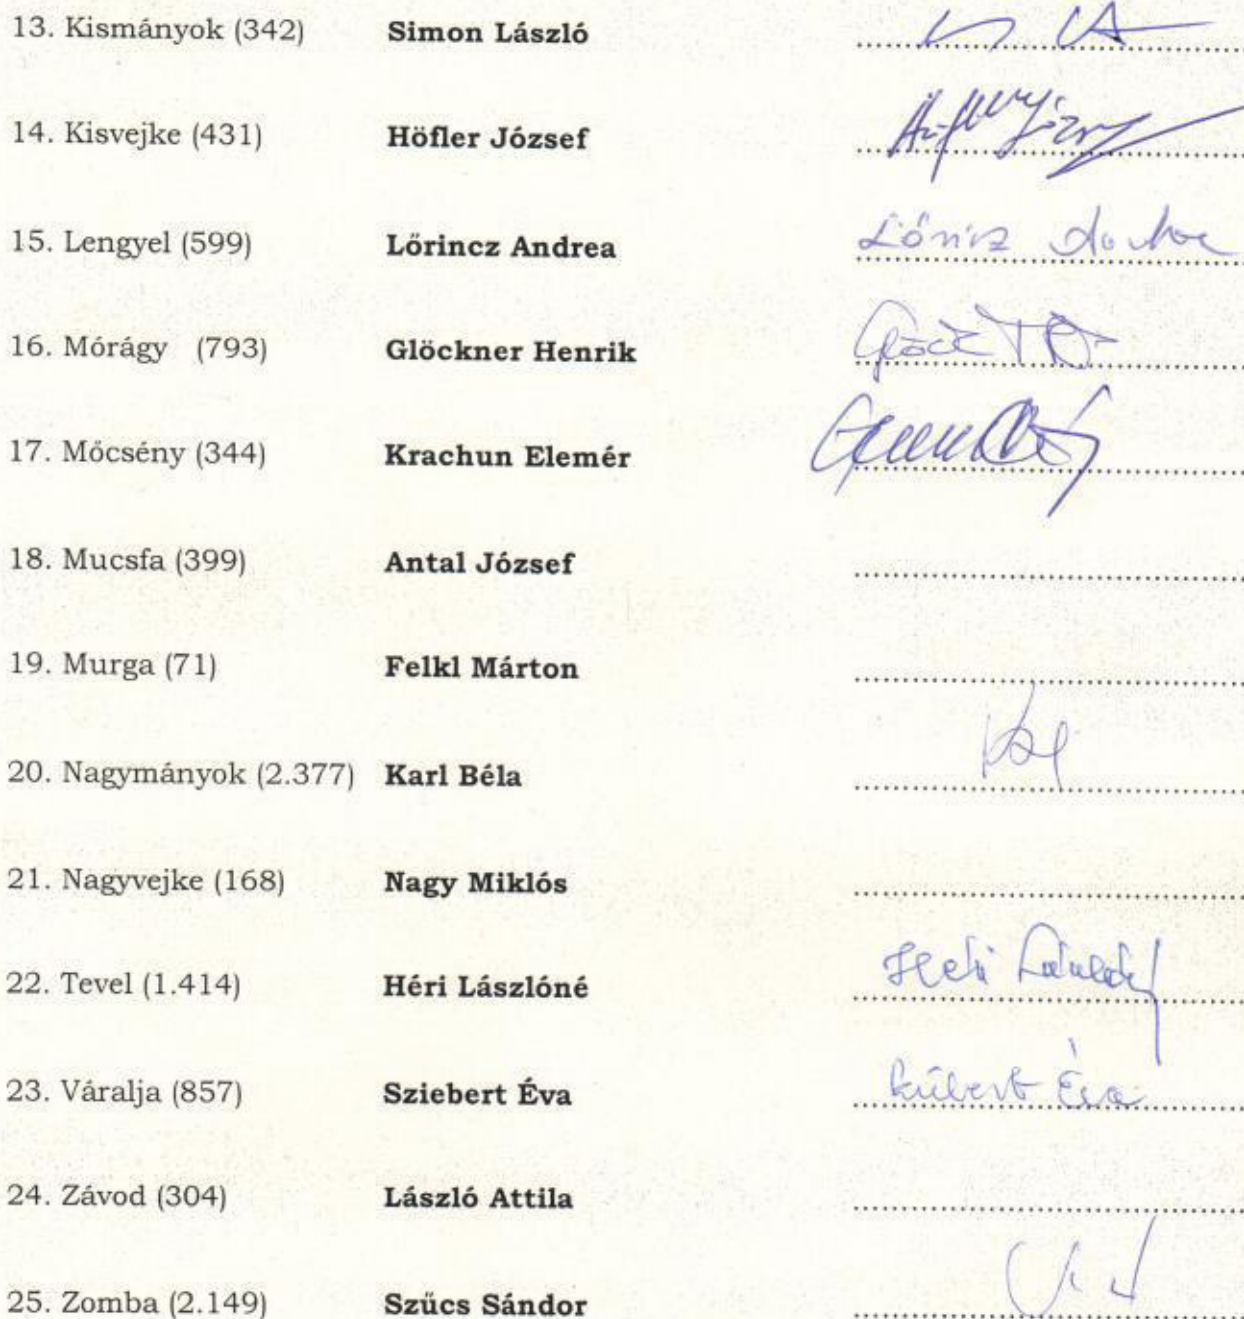 13. Kismányok (342) Simon László
14. Kisvejke (431) Höfler József
15. Lengyel (599) Lőrincz Andrea
16. Mórágy (793) Glöckner Henrik
17. Mőcsény (344) Krachun Elemér
18. Mucsfa (399) Antal József
19. Murga (71) Felkl Márton
20. Nagymányok (2.377) Karl Béla
21. Nagyvejke (168) Nagy Miklós
22. Tevel (1.414) Héri Lászlóné
23. Váralja (857) Sziebert Éva
24. Závod (304) László Attila
25. Zomba (2.149) Szűcs Sándor